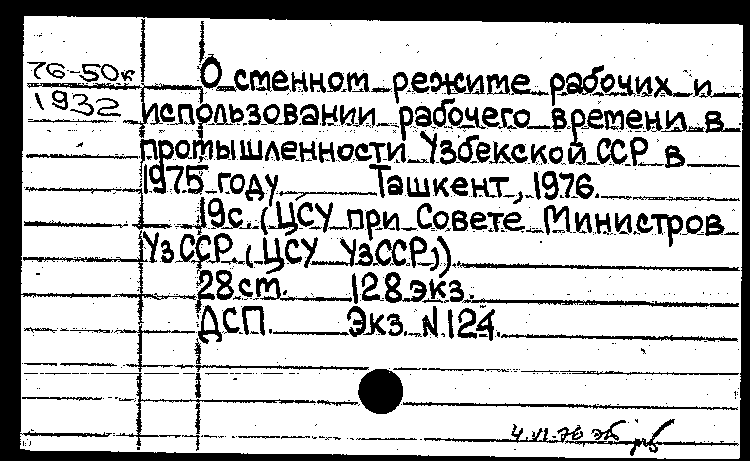 76-50к
1932
О сменном режиме рабочих и
использовании рабочего времени в
промышленности Узбекской ССР в
1975 году. Ташкент, 1976.
19с. (ЦСУ при Совете Министров
УзССР. (ЦСУ УзССР))
28ст. 128 экз.
ДСП. Экз. N 124.
4.VI.76